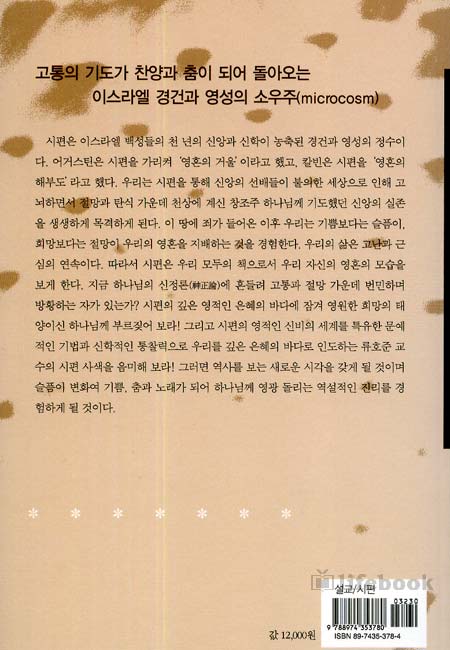 고통의 기도가 찬양과 춤이 되어 돌아오는
이스라엘 경건과 영성의 소우주(microcosm)
시편은 이스라엘 백성들의 천 년의 신앙과 신학이 농축된 경건과 영성의 정수이
다. 어거스틴은 시편을 가리켜 '영혼의 거울' 이라고 했고, 칼빈은 시편을 '영혼의
해부도' 라고 했다. 우리는 시편을 통해 신앙의 선배들이 불의한 세상으로 인해 고
뇌하면서 절망과 탄식 가운데 천상에 계신 창조주 하나님께 기도했던 신앙의 실존
을 생생하게 목격하게 된다. 이 땅에 죄가 들어온 이후 우리는 기쁨보다는 슬픔이,
희망보다는 절망이 우리의 영혼을 지배하는 것을 경험한다. 우리의 삶은 고난과 근
심의 연속이다. 따라서 시편은 우리 모두의 책으로서 우리 자신의 영혼의 모습을
보게 한다. 지금 하나님의 신정론(神正論)에 흔들려 고통과 절망 가운데 번민하며
방황하는 자가 있는가? 시편의 깊은 영적인 은혜의 바다에 잠겨 영원한 희망의 태
양이신 하나님께 부르짖어 보라! 그리고 시편의 영적인 신비의 세계를 특유한 문예
적인 기법과 신학적인 통찰력으로 우리를 깊은 은혜의 바다로 인도하는 류호준 교
수의 시편 사색을 음미해 보라! 그러면 역사를 보는 새로운 시각을 갖게 될 것이며
슬픔이 변화여 기쁨, 춤과 노래가 되어 하나님께 영광 돌리는 역설적인 진리를 경
험하게 될 것이다.
* * * * * * *
lifebook
설교/시편
03230
9 788974 353780
값 12,000원
ISBN 89-7435-378-4